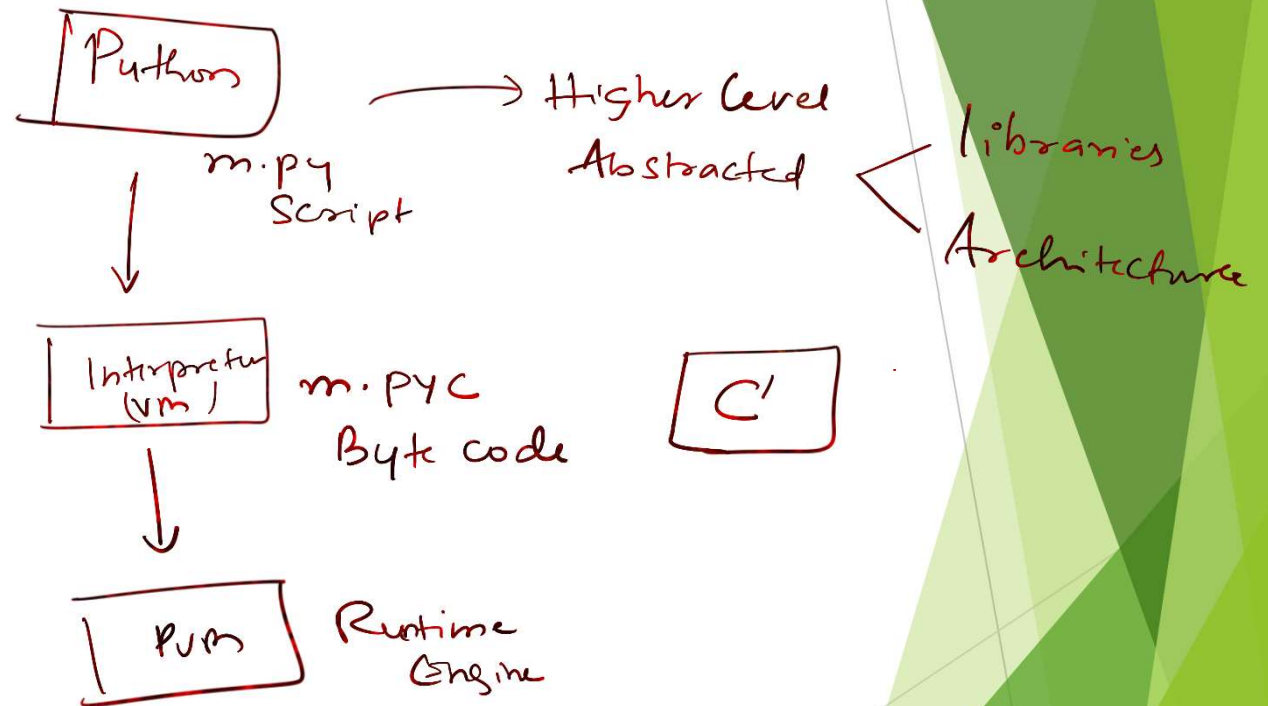 Python
m.py
Script
Higher level
Abstracted
libraries
Architecture
Interpreter
(VM)
m.pyc
Byte code
C
PVM
Runtime
Engine